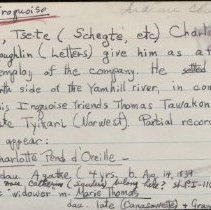 Iroquoise
, Tsete ( Schegte, etc) Charl
oughlin (Letters) give him as at
employ of the company. He settled
th side of the Yamhill river, in com
is Iroquoise friends Thomas Tawakon
te Tyikari (Norwest). Partial record
appear:
harlotte Pend d'Oreille -
dau Agathe ( 4 yrs. b. Aug 14, 1839
Catherine
widower m. Marie Thomas
dau. late (Canasawete) + Gran